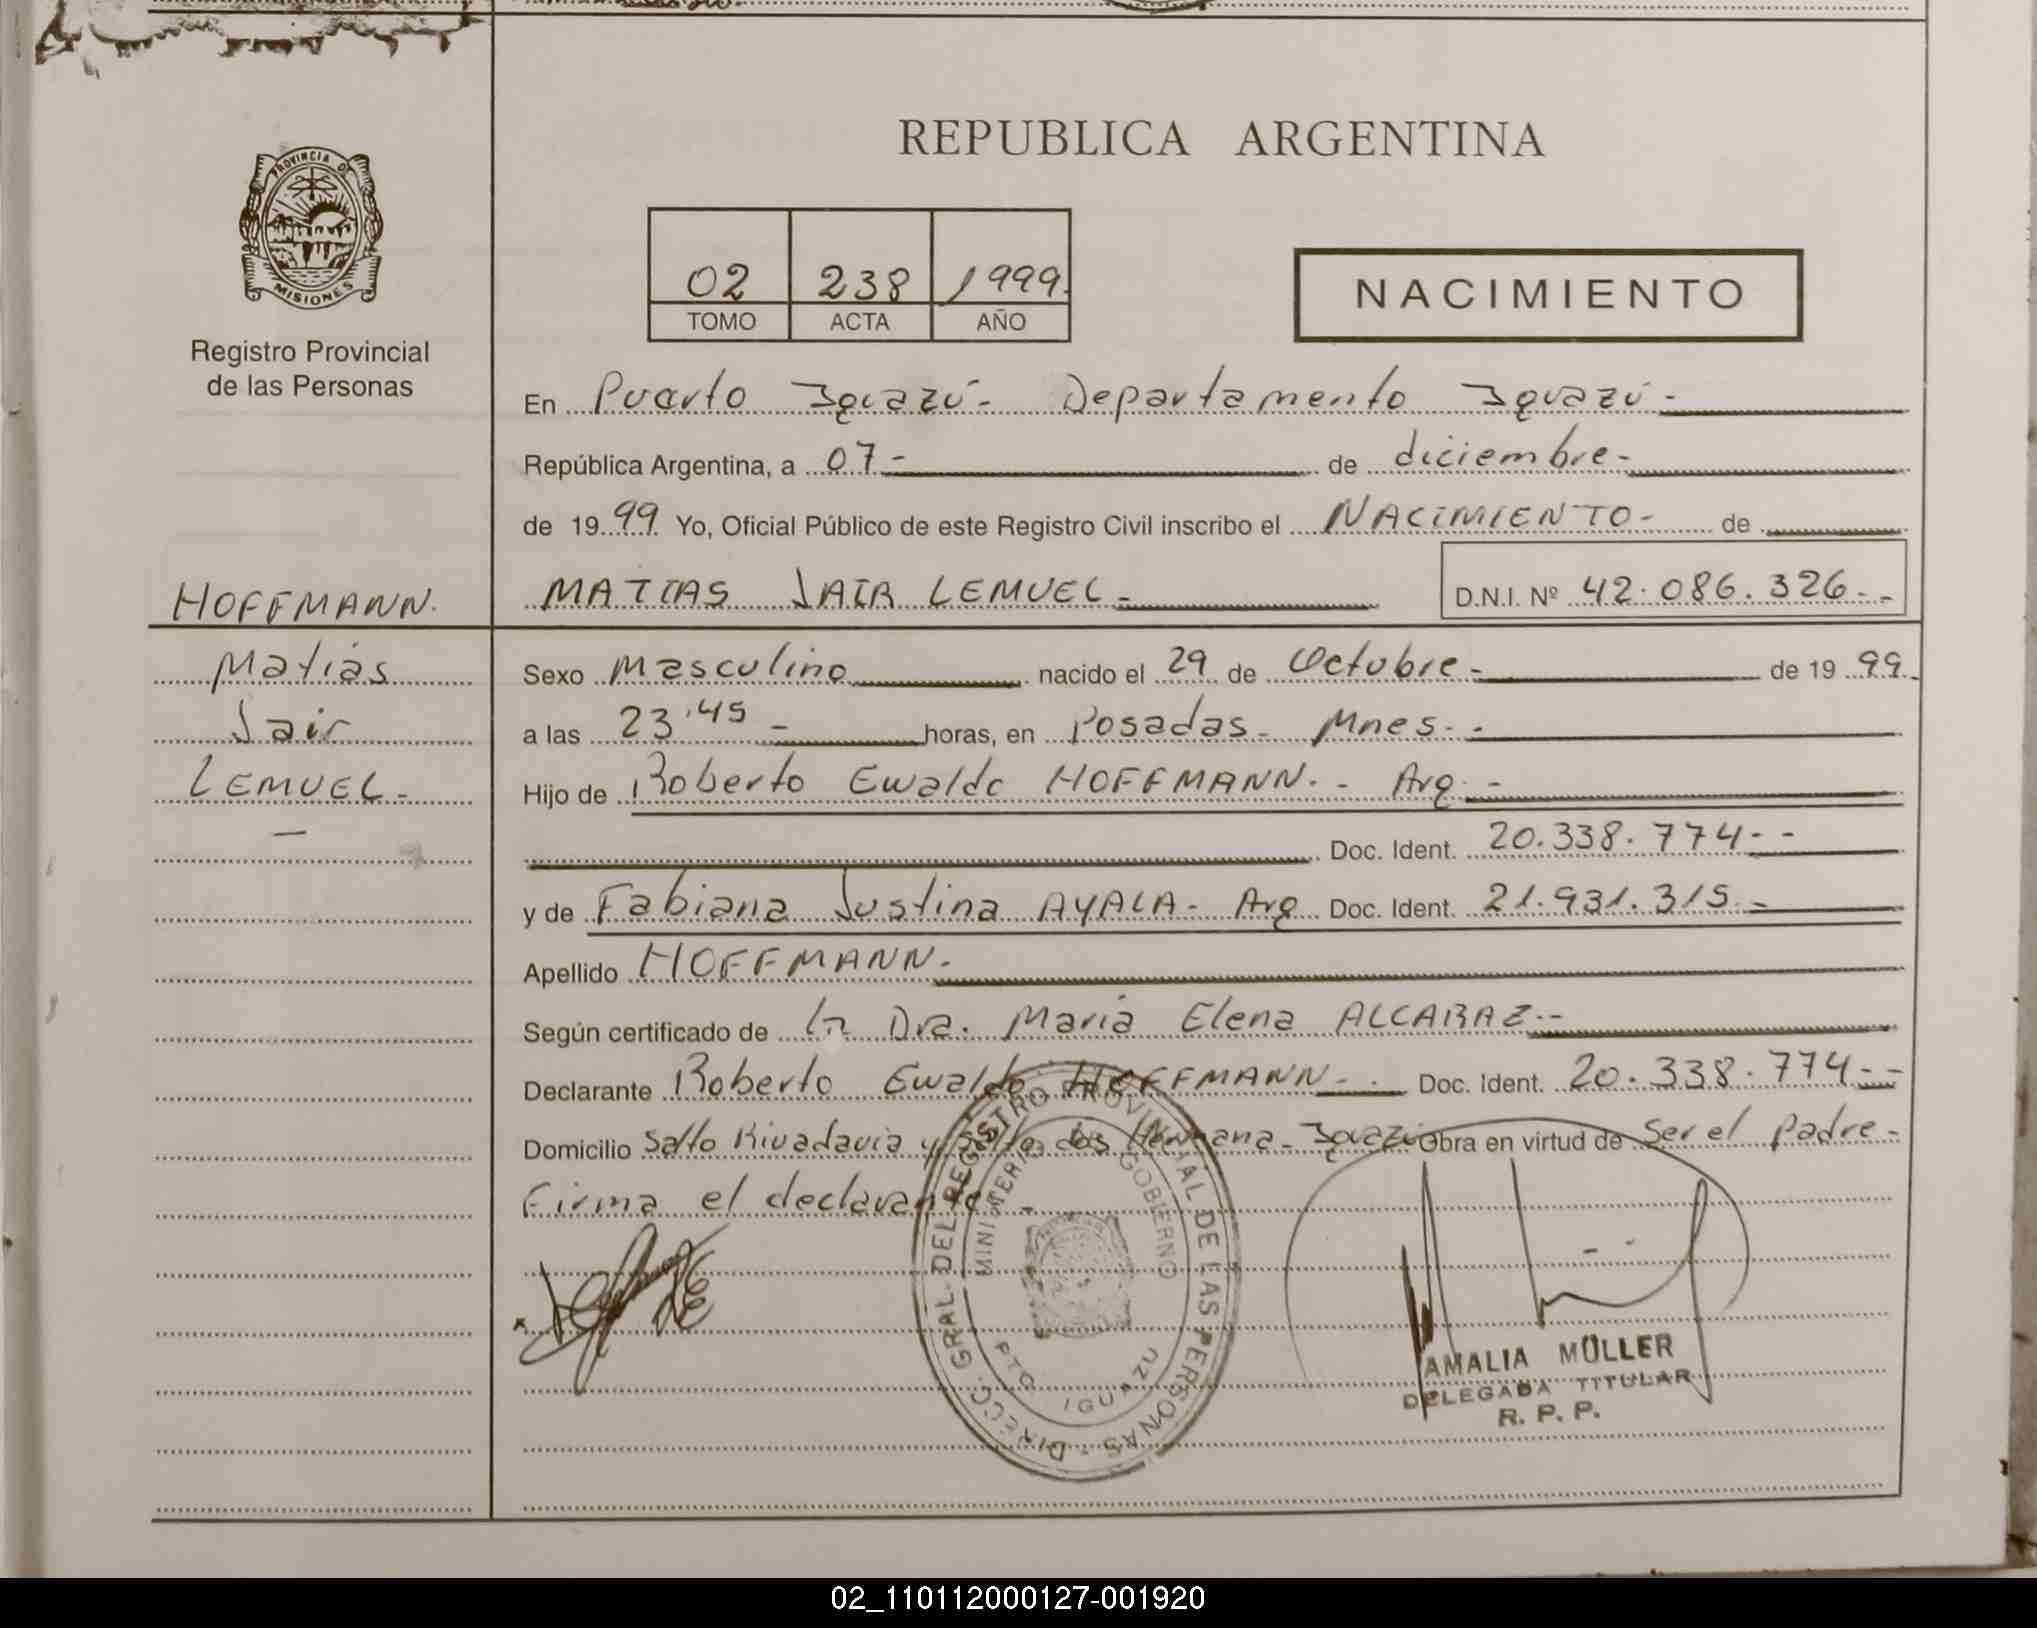 REPUBLICA ARGENTINA
PROVINCIA DE
MISIONES
Registro Provincial
de las Personas
02 238 1999
TOMO ACTA AÑO
NACIMIENTO
En Puerto Iguazú- Departamento Iguazú-
República Argentina, a 07- de diciembre-
de 1999 Yo, Oficial Público de este Registro Civil inscribo el NACIMIENTO- de
HOFFMANN.
MATIAS JAIR LEMUEL- D.N.I. Nº 42.086.326--
Matias
Jair
LEMUEL-
Sexo Masculino nacido el 29 de Octubre- de 1999.
a las 23'45 - horas, en Posadas- Mnes--
Hijo de Roberto Ewaldo HOFFMANN-- Arg-
Doc. Ident. 20.338.774--
y de Fabiana Justina AYALA- Arg Doc. Ident. 21.931.315-
Apellido HOFFMANN-
Según certificado de la Dra. Maria Elena ALCARAZ--
Declarante Roberto Ewaldo HOFFMANN-. Doc. Ident. 20.338.774--
Domicilio Salto Rivadavia y Salto dos Hermana- Iguazú Obra en virtud de Ser el padre-
Firma el declarante-
DIRECC. GRAL. DEL REGISTRO PROVINCIAL DE LAS PERSONAS
MINISTERIO GOBIERNO
PTO IGUAZU
AMALIA MÜLLER
DELEGADA TITULAR
R. P. P.
02_110112000127-001920